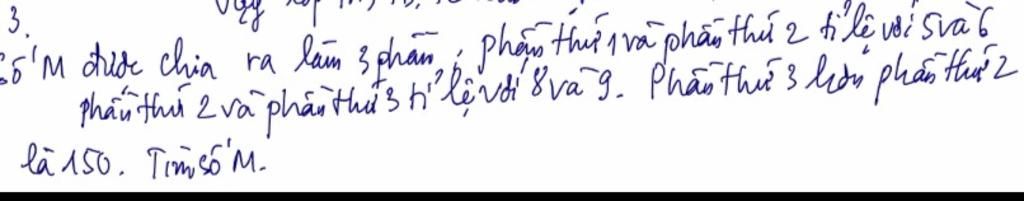 3.
Số M được chia ra làm 3 phần, phần thứ 1 và phần thứ 2 tỉ lệ với 5 và 6
phần thứ 2 và phần thứ 3 tỉ lệ với 8 và 9. Phần thứ 3 hơn phần thứ 2
là 150. Tìm số M.